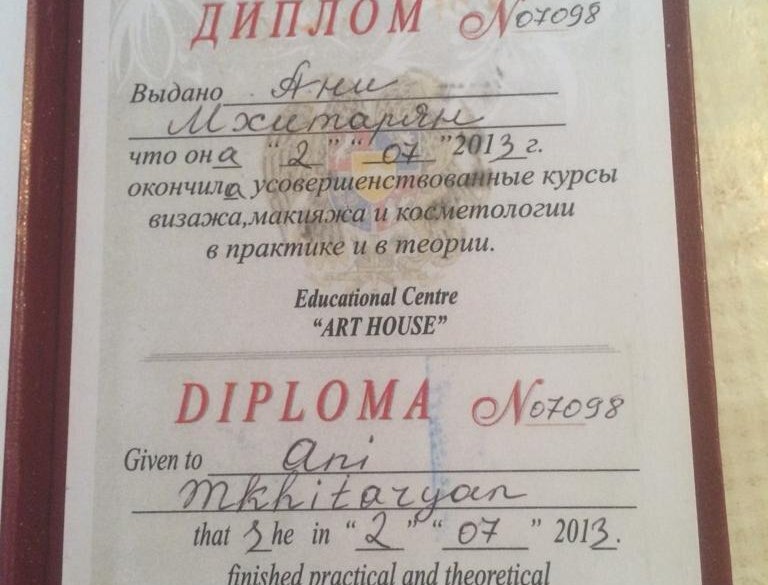 ДИПЛОМ №07098
Выдано Ани
Мхитарян
что она "2" "07" "2013 г.
окончила усовершенствованные курсы
визажа,макияжа и косметологии
в практике и в теории.
Educational Centre
"ART HOUSE"
DIPLOMA №07098
Given to Ani
Mkhitaryan
that she in "2" "07" 2013.
finished practical and theoretical